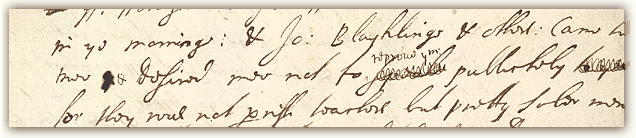 in ye morninge: & Jo: Blayklinge & others: Came to
reprove ym
mee & desired mee not to publickely
for they was not pish teachers but pretty sober men